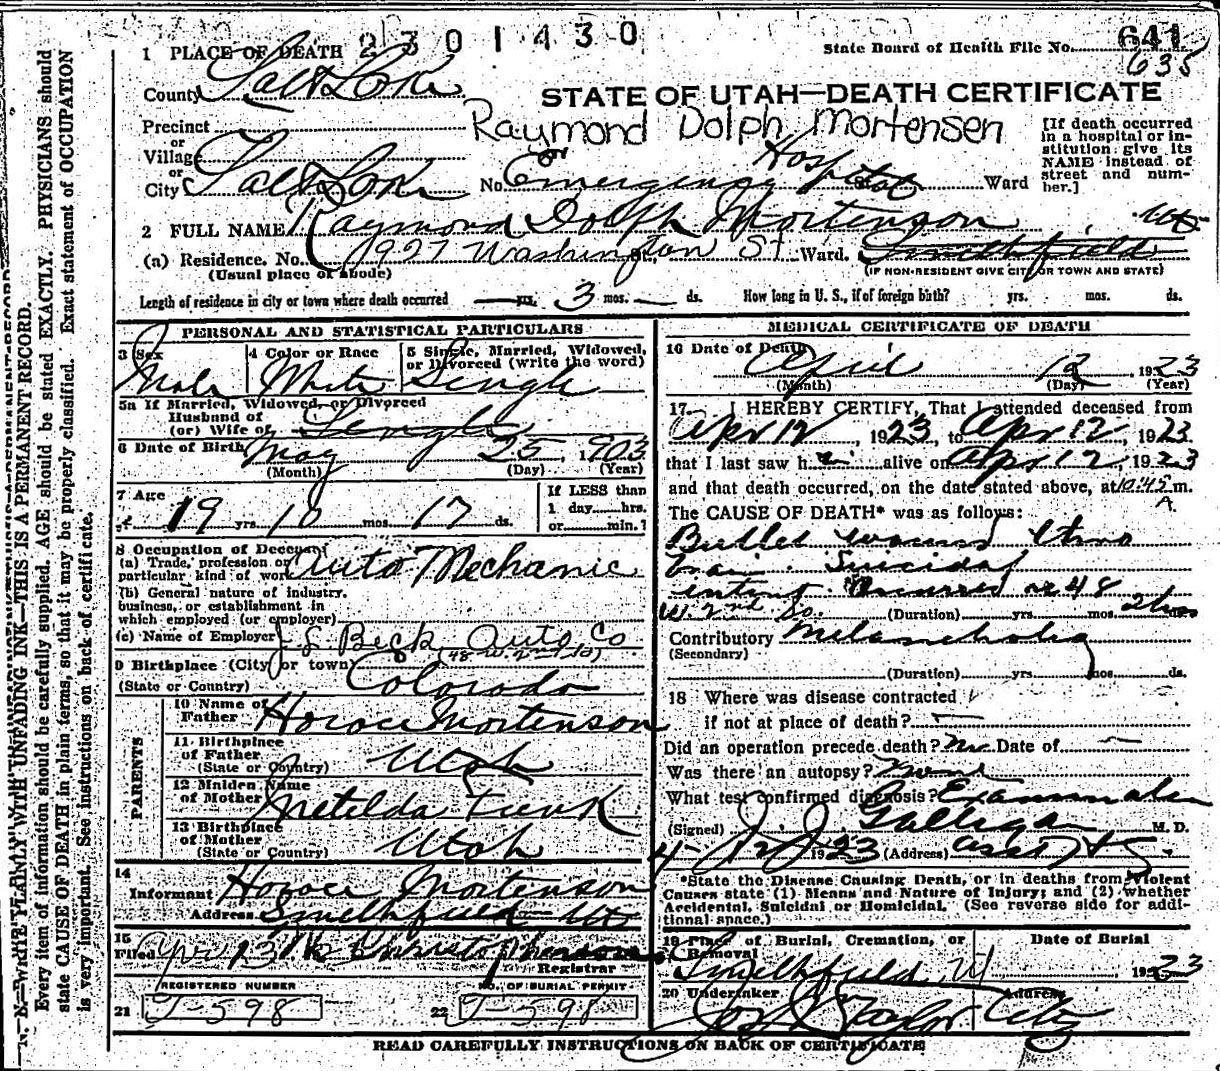 2301430
State Board of Health File No. 641
635
1 PLACE OF DEATH
County Salt Lake
STATE OF UTAH—DEATH CERTIFICATE
Precinct
or
Village
or
City Salt Lake
Raymond Dolph Mortensen
No. Emergency Hospital St. Ward
[If death occurred
in a hospital or in-
stitution give its
NAME instead of
street and num-
ber.]
2 FULL NAME Raymond Dolph Mortenson
(a) Residence. No. 1927 Washington St. Ward. Smithfield Ut
(Usual place of abode)
(IF NON-RESIDENT GIVE CITY OR TOWN AND STATE)
Length of residence in city or town where death occurred — yrs. 3 mos. — ds. How long in U. S., if of foreign birth? yrs. mos. ds.
PERSONAL AND STATISTICAL PARTICULARS
3 Sex
Male
4 Color or Race
White
5 Single, Married, Widowed,
or Divorced (write the word)
Single
5a If Married, Widowed, or Divorced
Husband of
(or) Wife of Single
6 Date of Birth May 25, 1903
(Month) (Day) (Year)
7 Age
19 yrs. 10 mos. 17 ds.
If LESS than
1 day......hrs.
or......min.?
8 Occupation of Decedent
(a) Trade, profession or
particular kind of work Auto Mechanic
(b) General nature of industry,
business, or establishment in
which employed (or employer)
(c) Name of Employer J. S. Beck Auto Co
(48 W. 2nd So)
9 Birthplace (City or town)
(State or Country) Colorado
PARENTS
10 Name of
Father Horace Mortenson
11 Birthplace
of Father
(State or Country) Utah
12 Maiden Name
of Mother Metilda Funk
13 Birthplace
of Mother
(State or Country) Utah
14
Informant Horace Mortenson
Address Smithfield Ut
15
Filed Apr 13
Registrar
REGISTERED NUMBER
21 J-598
NO. OF BURIAL PERMIT
22 J-598
MEDICAL CERTIFICATE OF DEATH
16 Date of Death
April 12, 1923
(Month) (Day) (Year)
17 I HEREBY CERTIFY, That I attended deceased from
Apr 12, 1923, to Apr 12, 1923
that I last saw him alive on Apr 12, 1923
and that death occurred, on the date stated above, at 10:45 A m.
The CAUSE OF DEATH* was as follows:
Bullet wound thro
brain. Suicidal
intent. Occurred at 48
W. 2nd So. (Duration) yrs. mos. 2 hrs
Contributory Melancholia
(Secondary)
(Duration) yrs. mos. ds.
18 Where was disease contracted
if not at place of death? —
Did an operation precede death? No Date of —
Was there an autopsy? None
What test confirmed diagnosis? Examination
(Signed) J. J. Galligan M. D.
1923 (Address)
*State the Disease Causing Death, or in deaths from Violent
Causes state (1) Means and Nature of Injury; and (2) whether
Accidental, Suicidal or Homicidal. (See reverse side for addi-
tional space.)
19 Place of Burial, Cremation, or
Removal
Date of Burial
Smithfield, U 1923
20 Undertaker Address
Jos Taylor City
READ CAREFULLY INSTRUCTIONS ON BACK OF CERTIFICATE
N. B.—WRITE PLAINLY WITH UNFADING INK—THIS IS A PERMANENT RECORD.
Every item of information should be carefully supplied. AGE should be stated EXACTLY. PHYSICIANS should
state CAUSE OF DEATH in plain terms, so that it may be properly classified. Exact statement of OCCUPATION
is very important. See instructions on back of certificate.